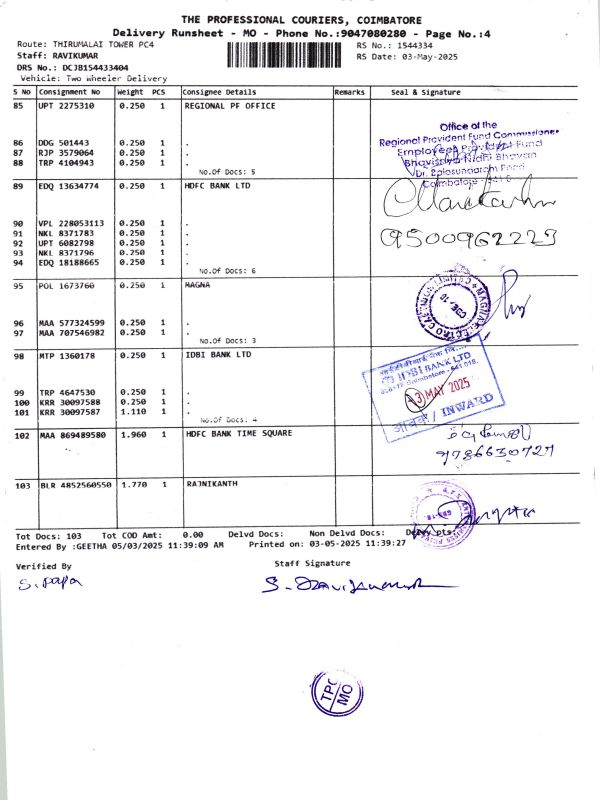 THE PROFESSIONAL COURIERS, COIMBATORE
Delivery Runsheet - MO - Phone No.:9047080280 - Page No.:4
Route: THIRUMALAI TOWER PC4 RS No.: 1544334
Staff: RAVIKUMAR RS Date: 03-May-2025
DRS No.: DCJB154433404
Vehicle: Two Wheeler Delivery
S No Consignment No Weight PCS Consignee Details Remarks Seal & Signature
85 UPT 2275310 0.250 1 REGIONAL PF OFFICE
Office of the
Regional Provident Fund Commissioner
Employees Provident Fund
Bhavishya Nidhi Bhavan
Dr. Balasundaram Road
Coimbatore
86 DDG 501443 0.250 1 .
87 RJP 3579064 0.250 1 .
88 TRP 4104943 0.250 1 .
No.Of Docs: 5
89 EDQ 13634774 0.250 1 HDFC BANK LTD
90 VPL 228053113 0.250 1 .
91 NKL 8371783 0.250 1 .
92 UPT 6082798 0.250 1 .
93 NKL 8371796 0.250 1 .
94 EDQ 18188665 0.250 1 .
9500962223
No.Of Docs: 6
95 POL 1673760 0.250 1 MAGNA
96 MAA 577324599 0.250 1 .
97 MAA 707546982 0.250 1 .
No.Of Docs: 3
98 MTP 1360178 0.250 1 IDBI BANK LTD
IDBI BANK LTD
Coimbatore - 641 018.
3 MAY 2025
आवक / INWARD
99 TRP 4647530 0.250 1 .
100 KRR 30097588 0.250 1 .
101 KRR 30097587 1.110 1 .
No.Of Docs: 4
102 MAA 869489580 1.960 1 HDFC BANK TIME SQUARE
9786630727
103 BLR 4852560550 1.770 1 RAJNIKANTH
Tot Docs: 103 Tot COD Amt: 0.00 Delvd Docs: Non Delvd Docs:
Entered By :GEETHA 05/03/2025 11:39:09 AM Printed on: 03-05-2025 11:39:27
Verified By Staff Signature
TPC
MO